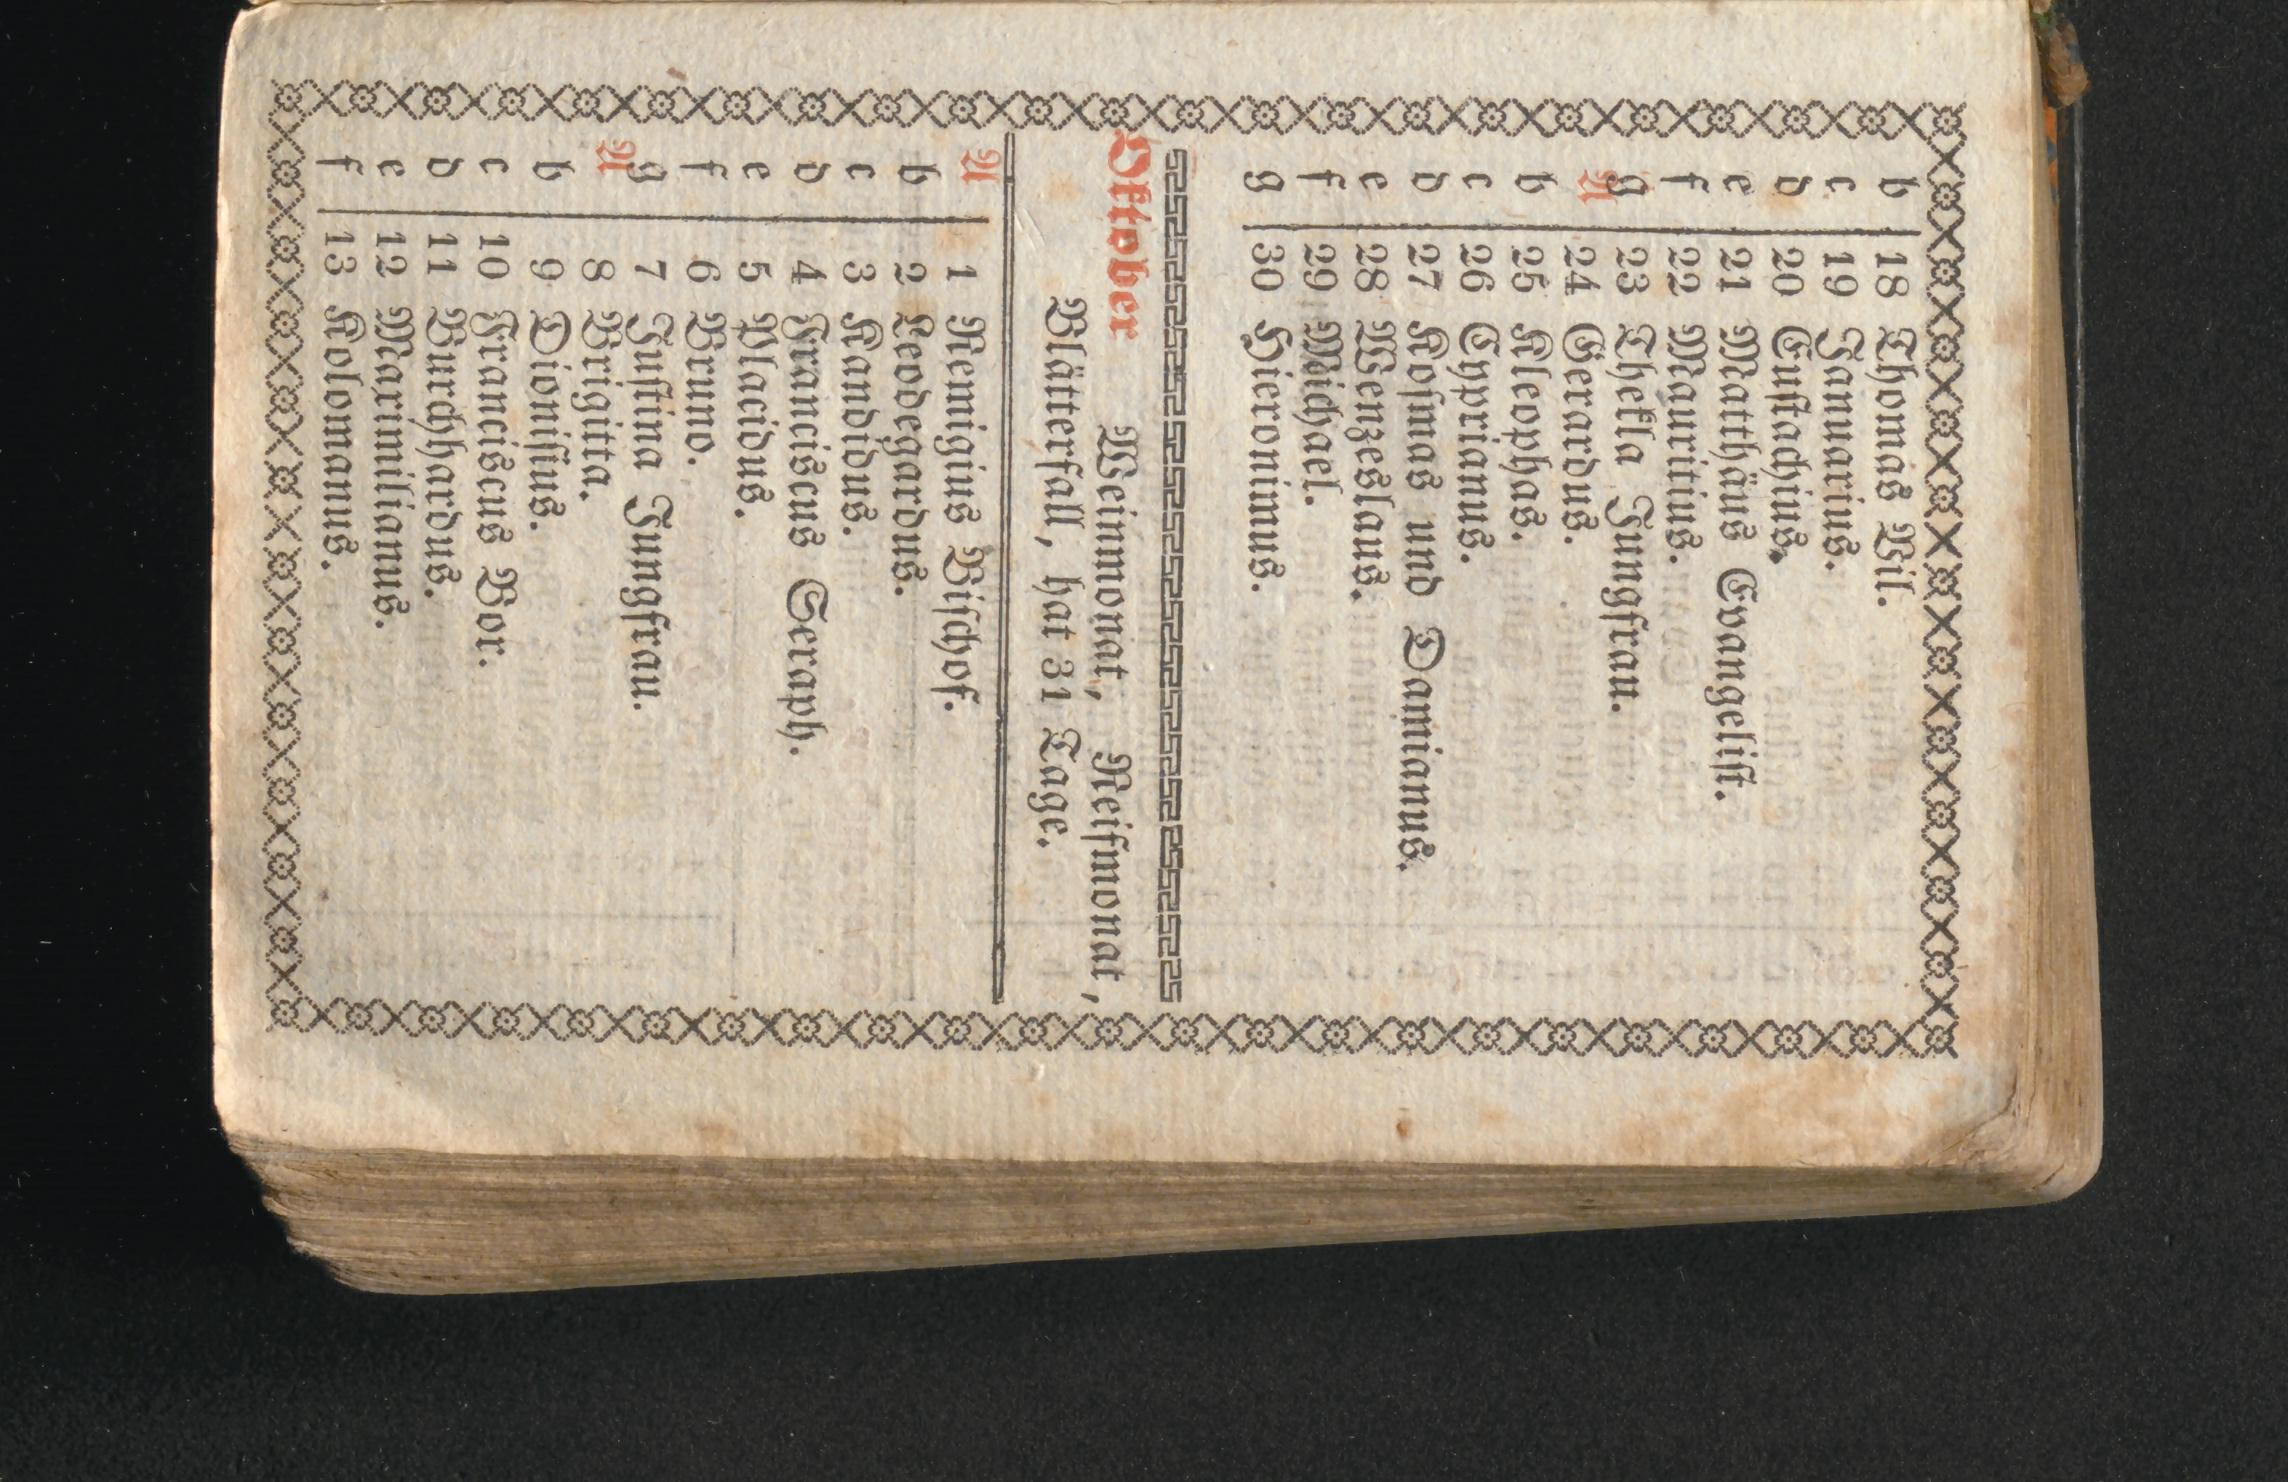 b 18 Thomas Vil.
c 19 Januarius.
d 20 Eustachius.
e 21 Matthäus Evangelist.
f 22 Mauritius.
g 23 Thekla Jungfrau.
A 24 Gerardus.
b 25 Kleophas.
c 26 Cyprianus.
d 27 Kosmas und Damianus.
e 28 Wenzeslaus.
f 29 Michael.
g 30 Hieronimus.
Oktober Weinmonat, Reifmonat,
Blätterfall, hat 31 Tage.
A 1 Remigius Bischof.
b 2 Leodegardus.
c 3 Kandidus.
d 4 Franciscus Seraph.
e 5 Placidus.
f 6 Bruno.
g 7 Justina Jungfrau.
A 8 Brigitta.
b 9 Dionisius.
c 10 Franciscus Bor.
d 11 Burchardus.
e 12 Maximilianus.
f 13 Kolomanus.